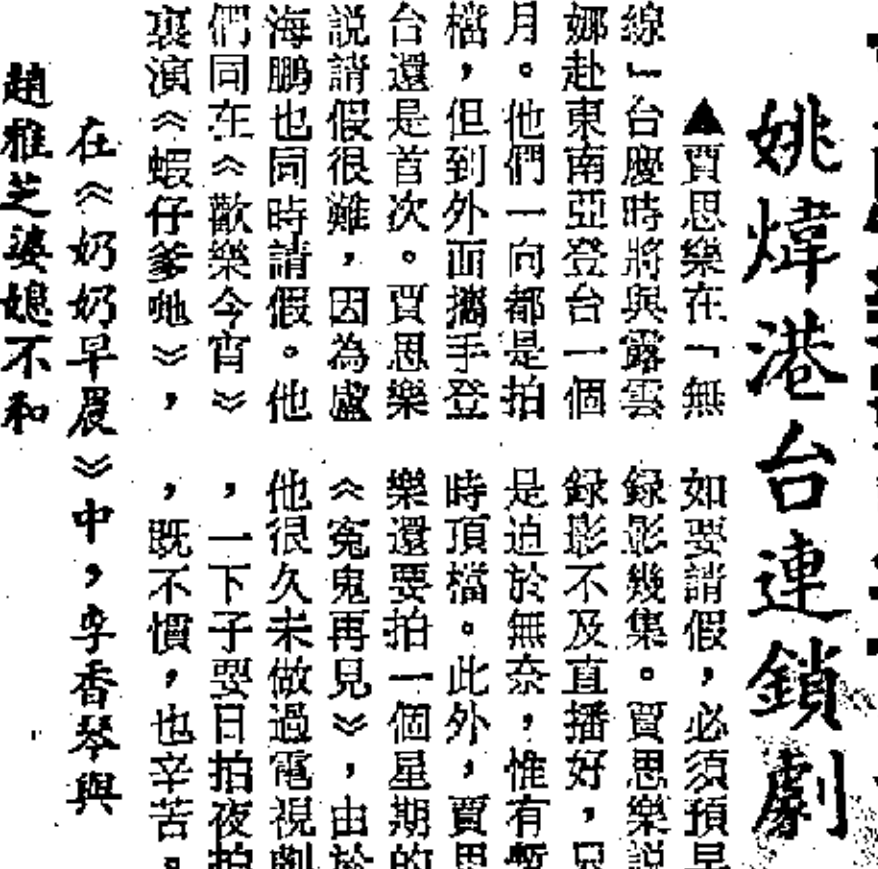 姚煒港台連鎖劇
▲賈思樂在「無
線」台慶時將與露雲
娜赴東南亞登台一個
月。他們一向都是拍
檔，但到外面攜手登
台還是首次。賈思樂
說請假很難，因為盧
海鵬也同時請假。他
們同在《歡樂今宵》
裏演《蝦仔爹哋》，
如要請假，必須預早
錄影幾集。賈思樂說
錄影不及直播好，只
是迫於無奈，惟有暫
時頂檔。此外，賈思
樂還要拍一個星期的
《寃鬼再見》，由於
他很久未做過電視劇
，一下子要日拍夜拍
，既不慣，也辛苦。
在《奶奶早晨》中，李香琴與
趙雅芝婆媳不和